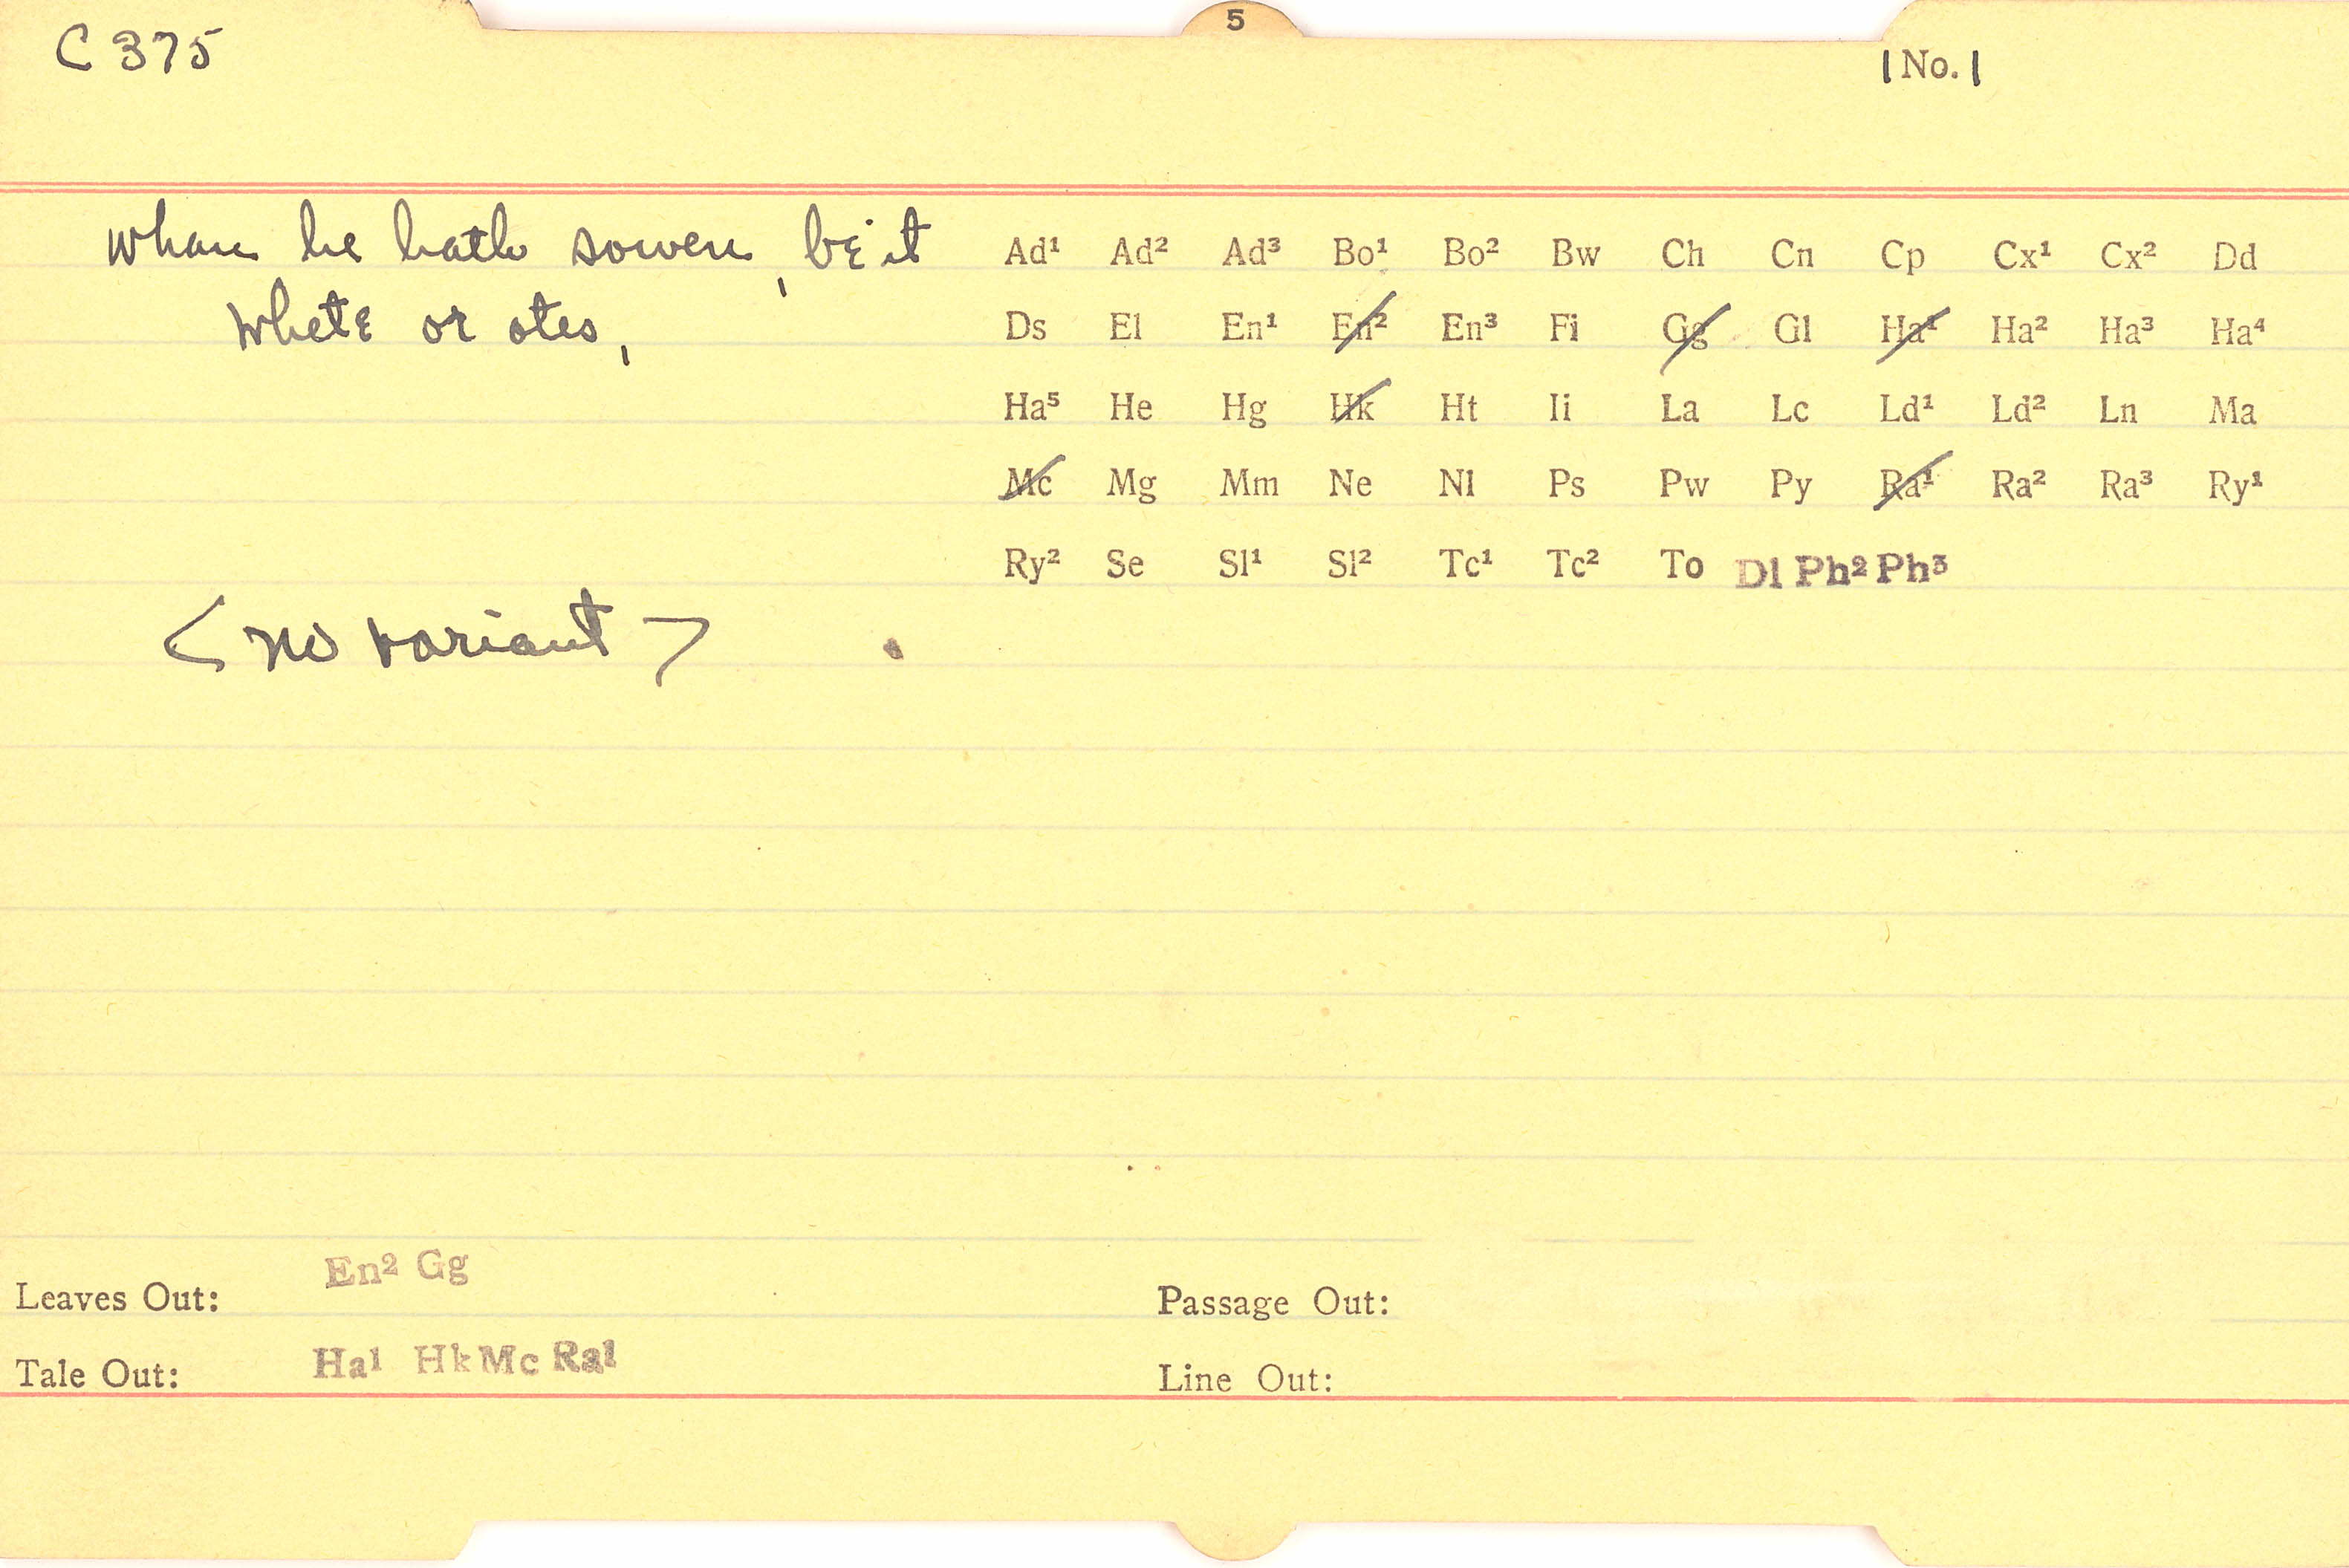 5
C 375
|No.|
whan he hath sowen, be it
whete or otes,
Ad¹ Ad² Ad³ Bo¹ Bo² Bw Ch Cn Cp Cx¹ Cx² Dd
Ds El En¹ En² En³ Fi Gg Gl Ha¹ Ha² Ha³ Ha⁴
Ha⁵ He Hg Hk Ht Ii La Lc Ld¹ Ld² Ln Ma
Mc Mg Mm Ne Nl Ps Pw Py Ra¹ Ra² Ra³ Ry¹
Ry² Se Sl¹ Sl² Tc¹ Tc² To Dl Ph² Ph³
<no variant>
Leaves Out: En² Gg
Passage Out:
Tale Out: Ha¹ Hk Mc Ra¹
Line Out: